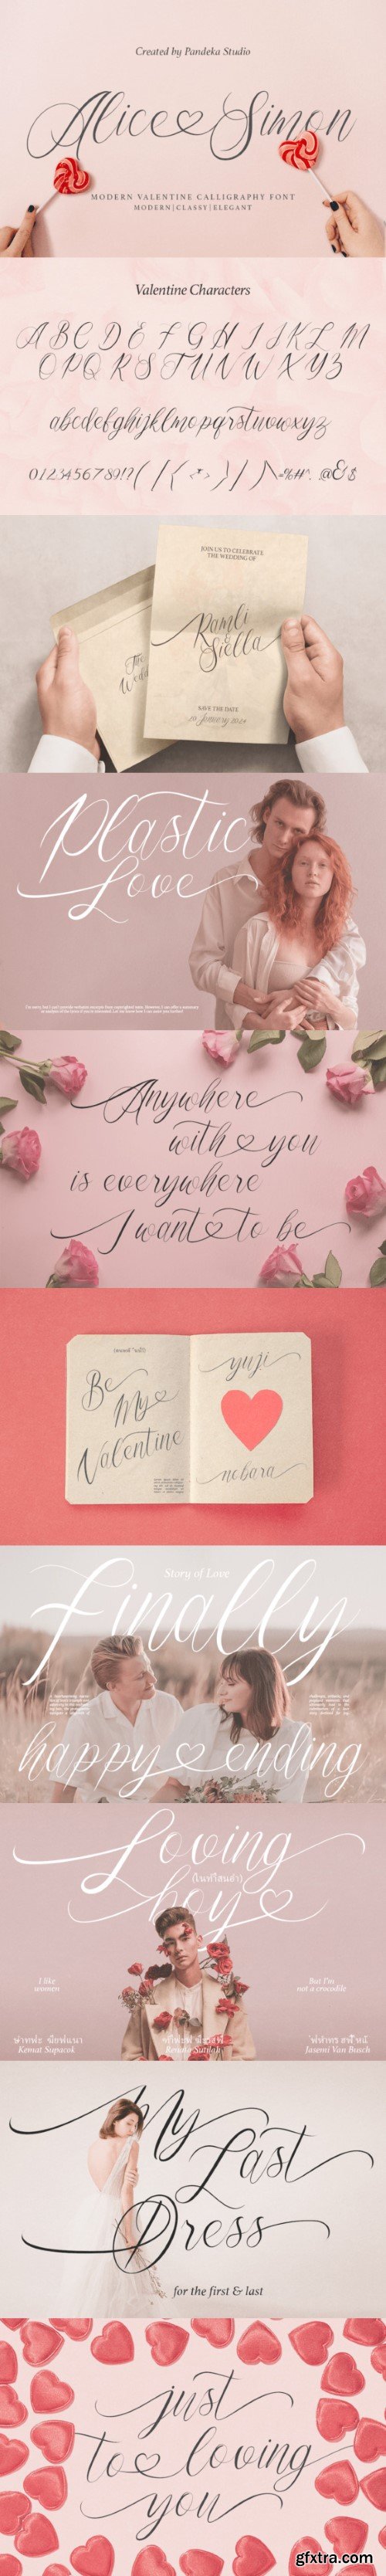 Created by Pandeka Studio
Alice Simon
MODERN VALENTINE CALLIGRAPHY FONT
MODERN|CLASSY|ELEGANT
Valentine Characters
A B C D E F G H I J K L M
O P Q R S T U V W X Y Z
abcdefghijklmopqrstuvwxyz
JOIN US TO CELEBRATE
THE WEDDING OF
Ramli
&
Siella
SAVE THE DATE
The
Plastic
Love
Anywhere
with you
is everywhere
I want to be
Be
My
Valentine
yuji
nobara
Story of Love
Finally
happy ending
Loving
boy
I like
women
But I'm
not a crocodile
Kemat Supacok
Jasemi Van Busch
My
Last
Dress
for the first & last
just
to loving
you
gfxtra.com